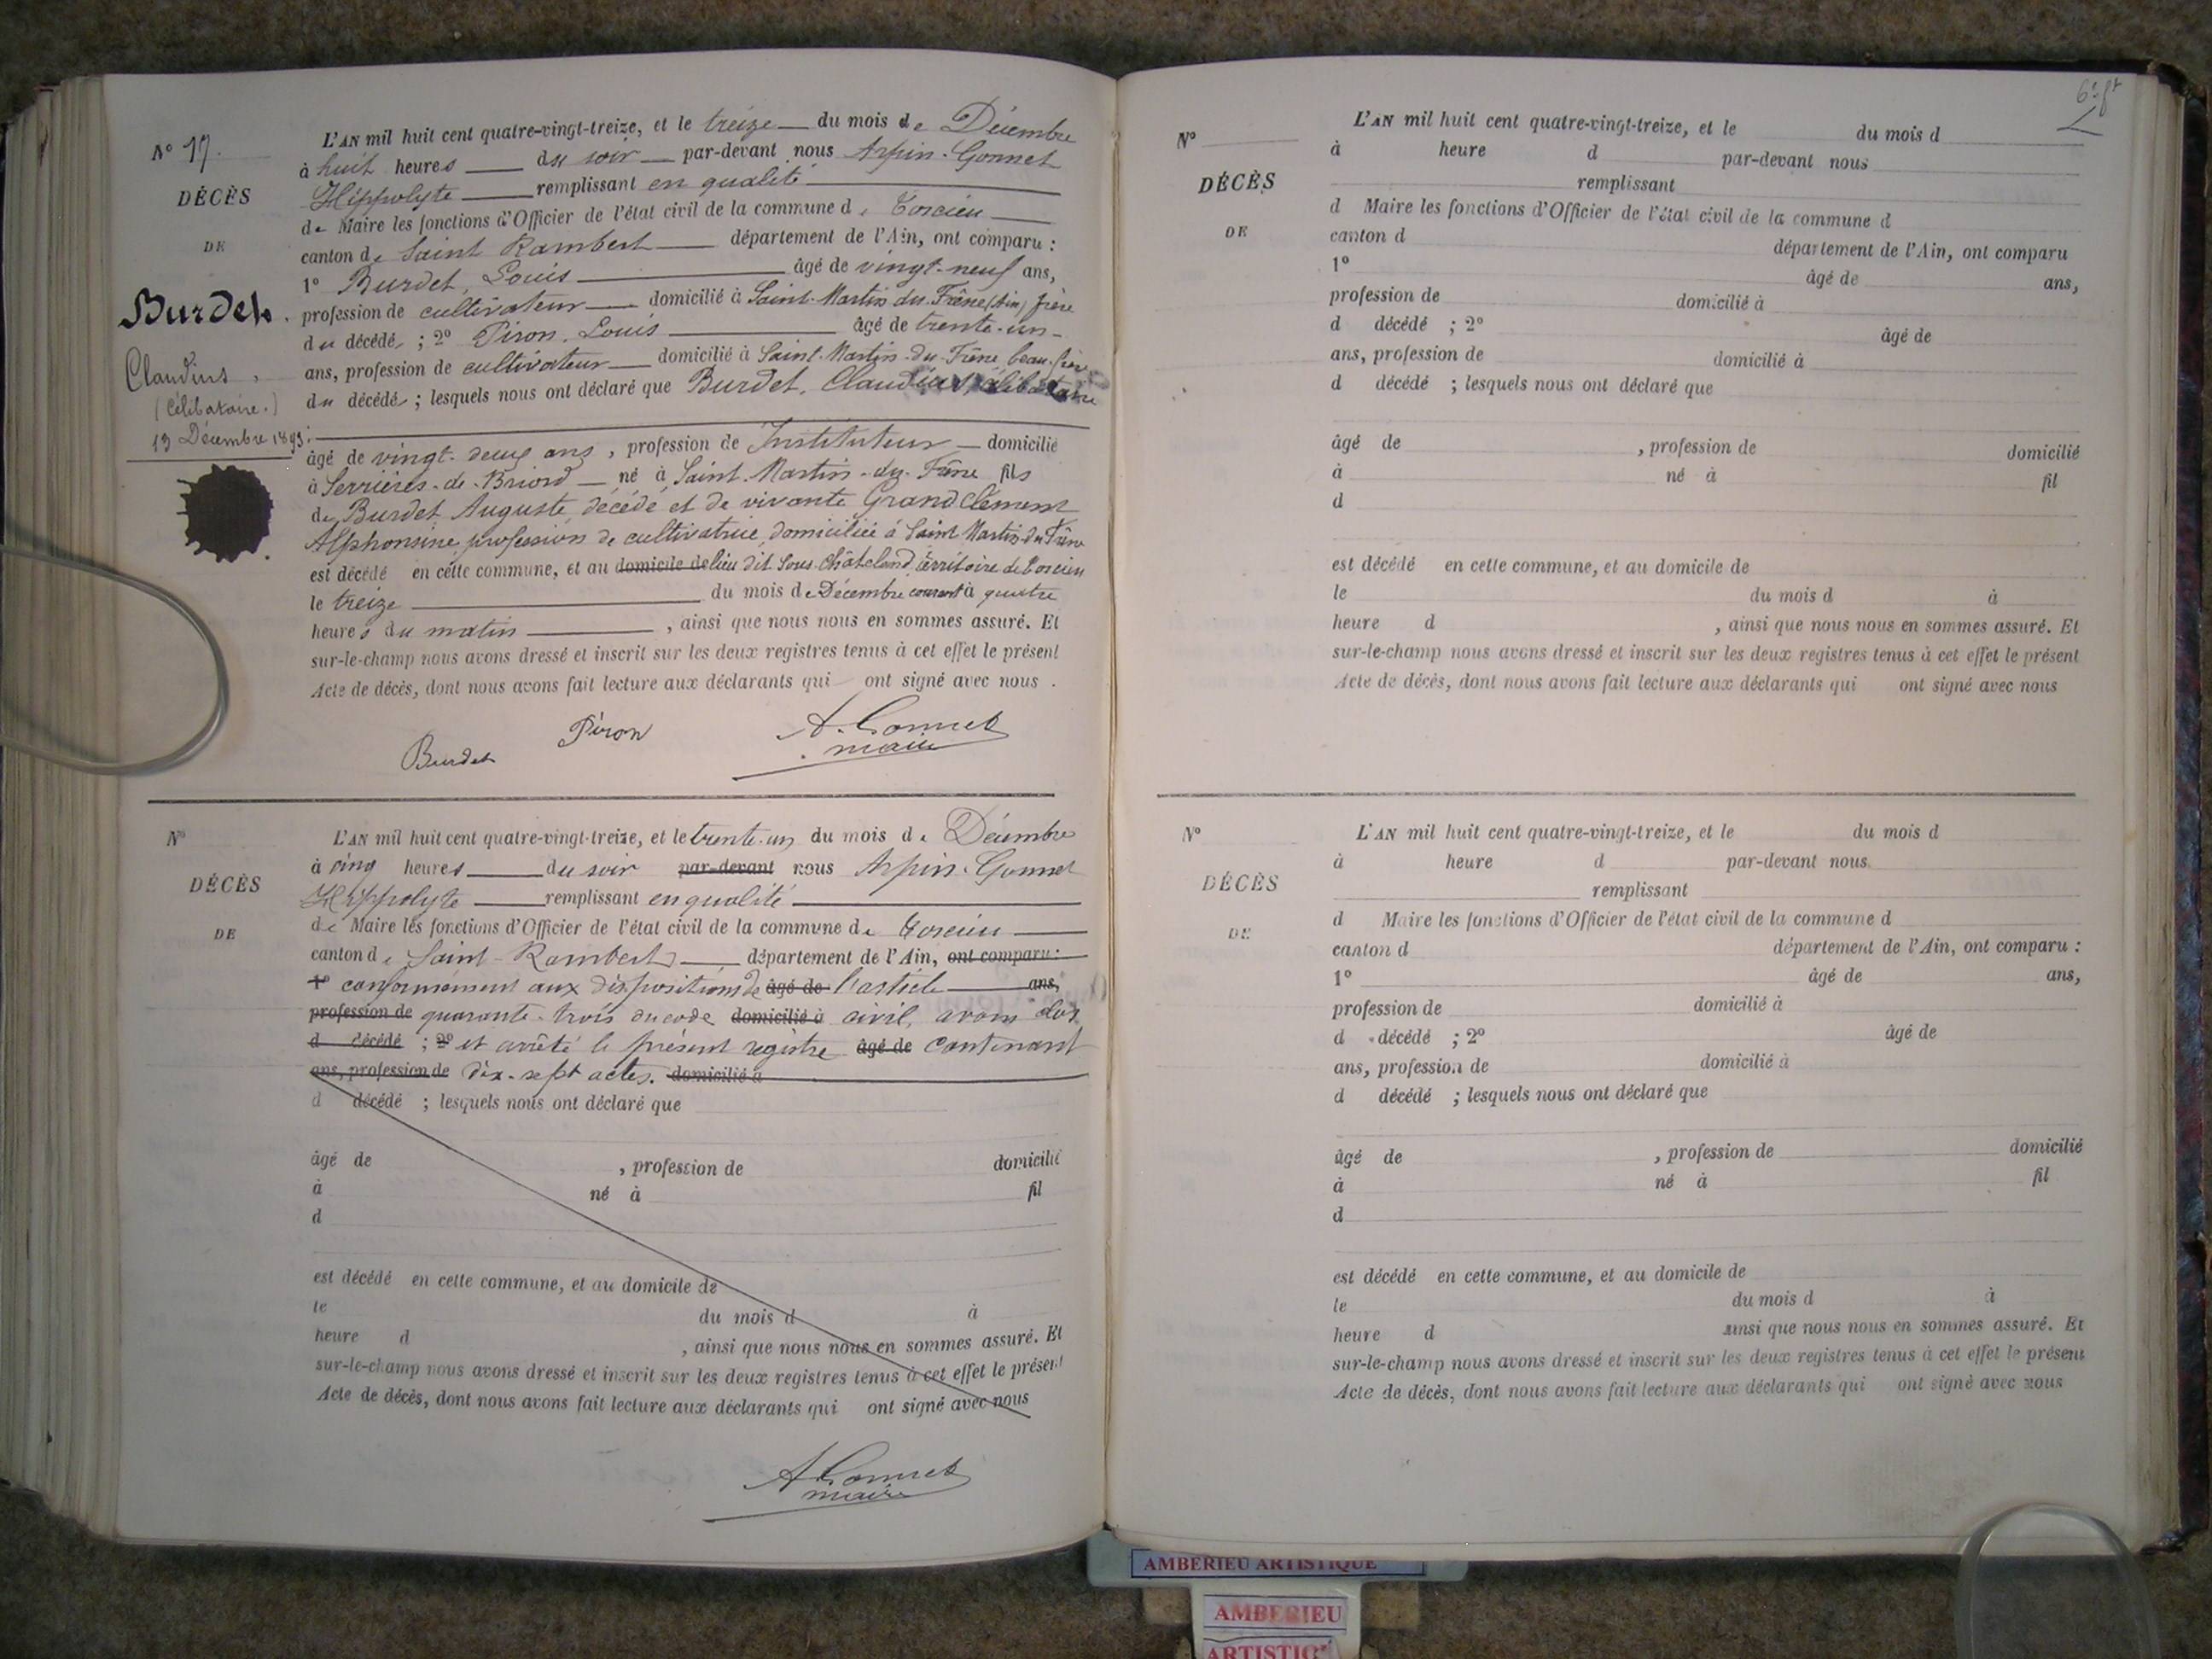 N° 17.
DÉCÈS
DE
Burdet.
Claudius,
(Célibataire.)
13 Décembre 1893.
L'AN mil huit cent quatre-vingt-treize, et le treize du mois de Décembre
à huit heures du soir par-devant nous Arpin-Gonnet
Hippolyte remplissant en qualité
de Maire les fonctions d'Officier de l'état civil de la commune de Torcieu
canton de Saint Rambert département de l'Ain, ont comparu :
1° Burdet, Louis âgé de vingt-neuf ans,
profession de cultivateur domicilié à Saint-Martin du Frêne (Ain) frère
du décédé ; 2° Piron, Louis âgé de trente-un
ans, profession de cultivateur domicilié à Saint-Martin-du-Frêne beau-frère
du décédé ; lesquels nous ont déclaré que Burdet, Claudius, célibataire
âgé de vingt-deux ans, profession de Instituteur domicilié
à Serrières-de-Briord né à Saint-Martin-du-Frêne fils
de Burdet Auguste décédé et de vivante Grandclément
Alphonsine profession de cultivatrice, domiciliée à Saint Martin-du-Frêne
est décédé en cette commune, et au domicile de lieu dit Sous Châteland territoire de Torcieu
le treize du mois de Décembre courant à quatre
heures du matin , ainsi que nous nous en sommes assuré. Et
sur-le-champ nous avons dressé et inscrit sur les deux registres tenus à cet effet le présent
Acte de décès, dont nous avons fait lecture aux déclarants qui ont signé avec nous.
Burdet Piron A. Gonnet
maire
N°
DÉCÈS
DE
L'AN mil huit cent quatre-vingt-treize, et le trente-un du mois de Décembre
à cinq heures du soir par-devant nous Arpin-Gonnet
Hippolyte remplissant en qualité
de Maire les fonctions d'Officier de l'état civil de la commune de Torcieu
canton de Saint-Rambert département de l'Ain, ont comparu :
1° conformément aux dispositions de âgé de l'article ans,
profession de quarante-trois du code domicilié à civil, avons clos
d décédé ; 2° et arrêté le présent registre âgé de contenant
ans, profession de dix-sept actes. domicilié à
d décédé ; lesquels nous ont déclaré que
âgé de , profession de domicilié
à né à fil
d
est décédé en cette commune, et au domicile de
le du mois d à
heure d , ainsi que nous nous en sommes assuré. Et
sur-le-champ nous avons dressé et inscrit sur les deux registres tenus à cet effet le présent
Acte de décès, dont nous avons fait lecture aux déclarants qui ont signé avec nous
A Gonnet
maire
N°
DÉCÈS
DE
L'AN mil huit cent quatre-vingt-treize, et le du mois d
à heure d par-devant nous
remplissant
d Maire les fonctions d'Officier de l'état civil de la commune d
canton d département de l'Ain, ont comparu
1° âgé de ans,
profession de domicilié à
d décédé ; 2° âgé de
ans, profession de domicilié à
d décédé ; lesquels nous ont déclaré que
âgé de , profession de domicilié
à né à fil
d
est décédé en cette commune, et au domicile de
le du mois d à
heure d , ainsi que nous nous en sommes assuré. Et
sur-le-champ nous avons dressé et inscrit sur les deux registres tenus à cet effet le présent
Acte de décès, dont nous avons fait lecture aux déclarants qui ont signé avec nous
N°
DÉCÈS
DE
L'AN mil huit cent quatre-vingt-treize, et le du mois d
à heure d par-devant nous
remplissant
d Maire les fonctions d'Officier de l'état civil de la commune d
canton d département de l'Ain, ont comparu :
1° âgé de ans,
profession de domicilié à
d décédé ; 2° âgé de
ans, profession de domicilié à
d décédé ; lesquels nous ont déclaré que
âgé de , profession de domicilié
à né à fil
d
est décédé en cette commune, et au domicile de
le du mois d à
heure d ainsi que nous nous en sommes assuré. Et
sur-le-champ nous avons dressé et inscrit sur les deux registres tenus à cet effet le présent
Acte de décès, dont nous avons fait lecture aux déclarants qui ont signé avec nous
AMBERIEU ARTISTIQUE
AMBERIEU
ARTISTIQ